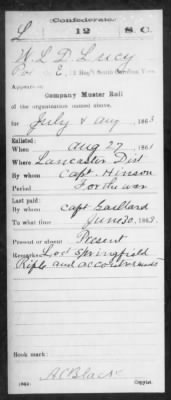 Confederate.
L 12 S. C.
W. L. D. Lucy
Co. E, 12 Reg't South Carolina Vols.
Appears on
Company Muster Roll
of the organization named above,
for July & Aug, 1863
Enlisted:
When Aug 27, 1861
Where Lancaster Dist
By whom Capt. Hinson
Period For the war
Last paid:
By whom Capt Gaillard
To what time June 30, 1863.
Present or absent Present
Remarks: Springfield
Rifle and accoutrements
Book mark:
A C Black
Copyist.